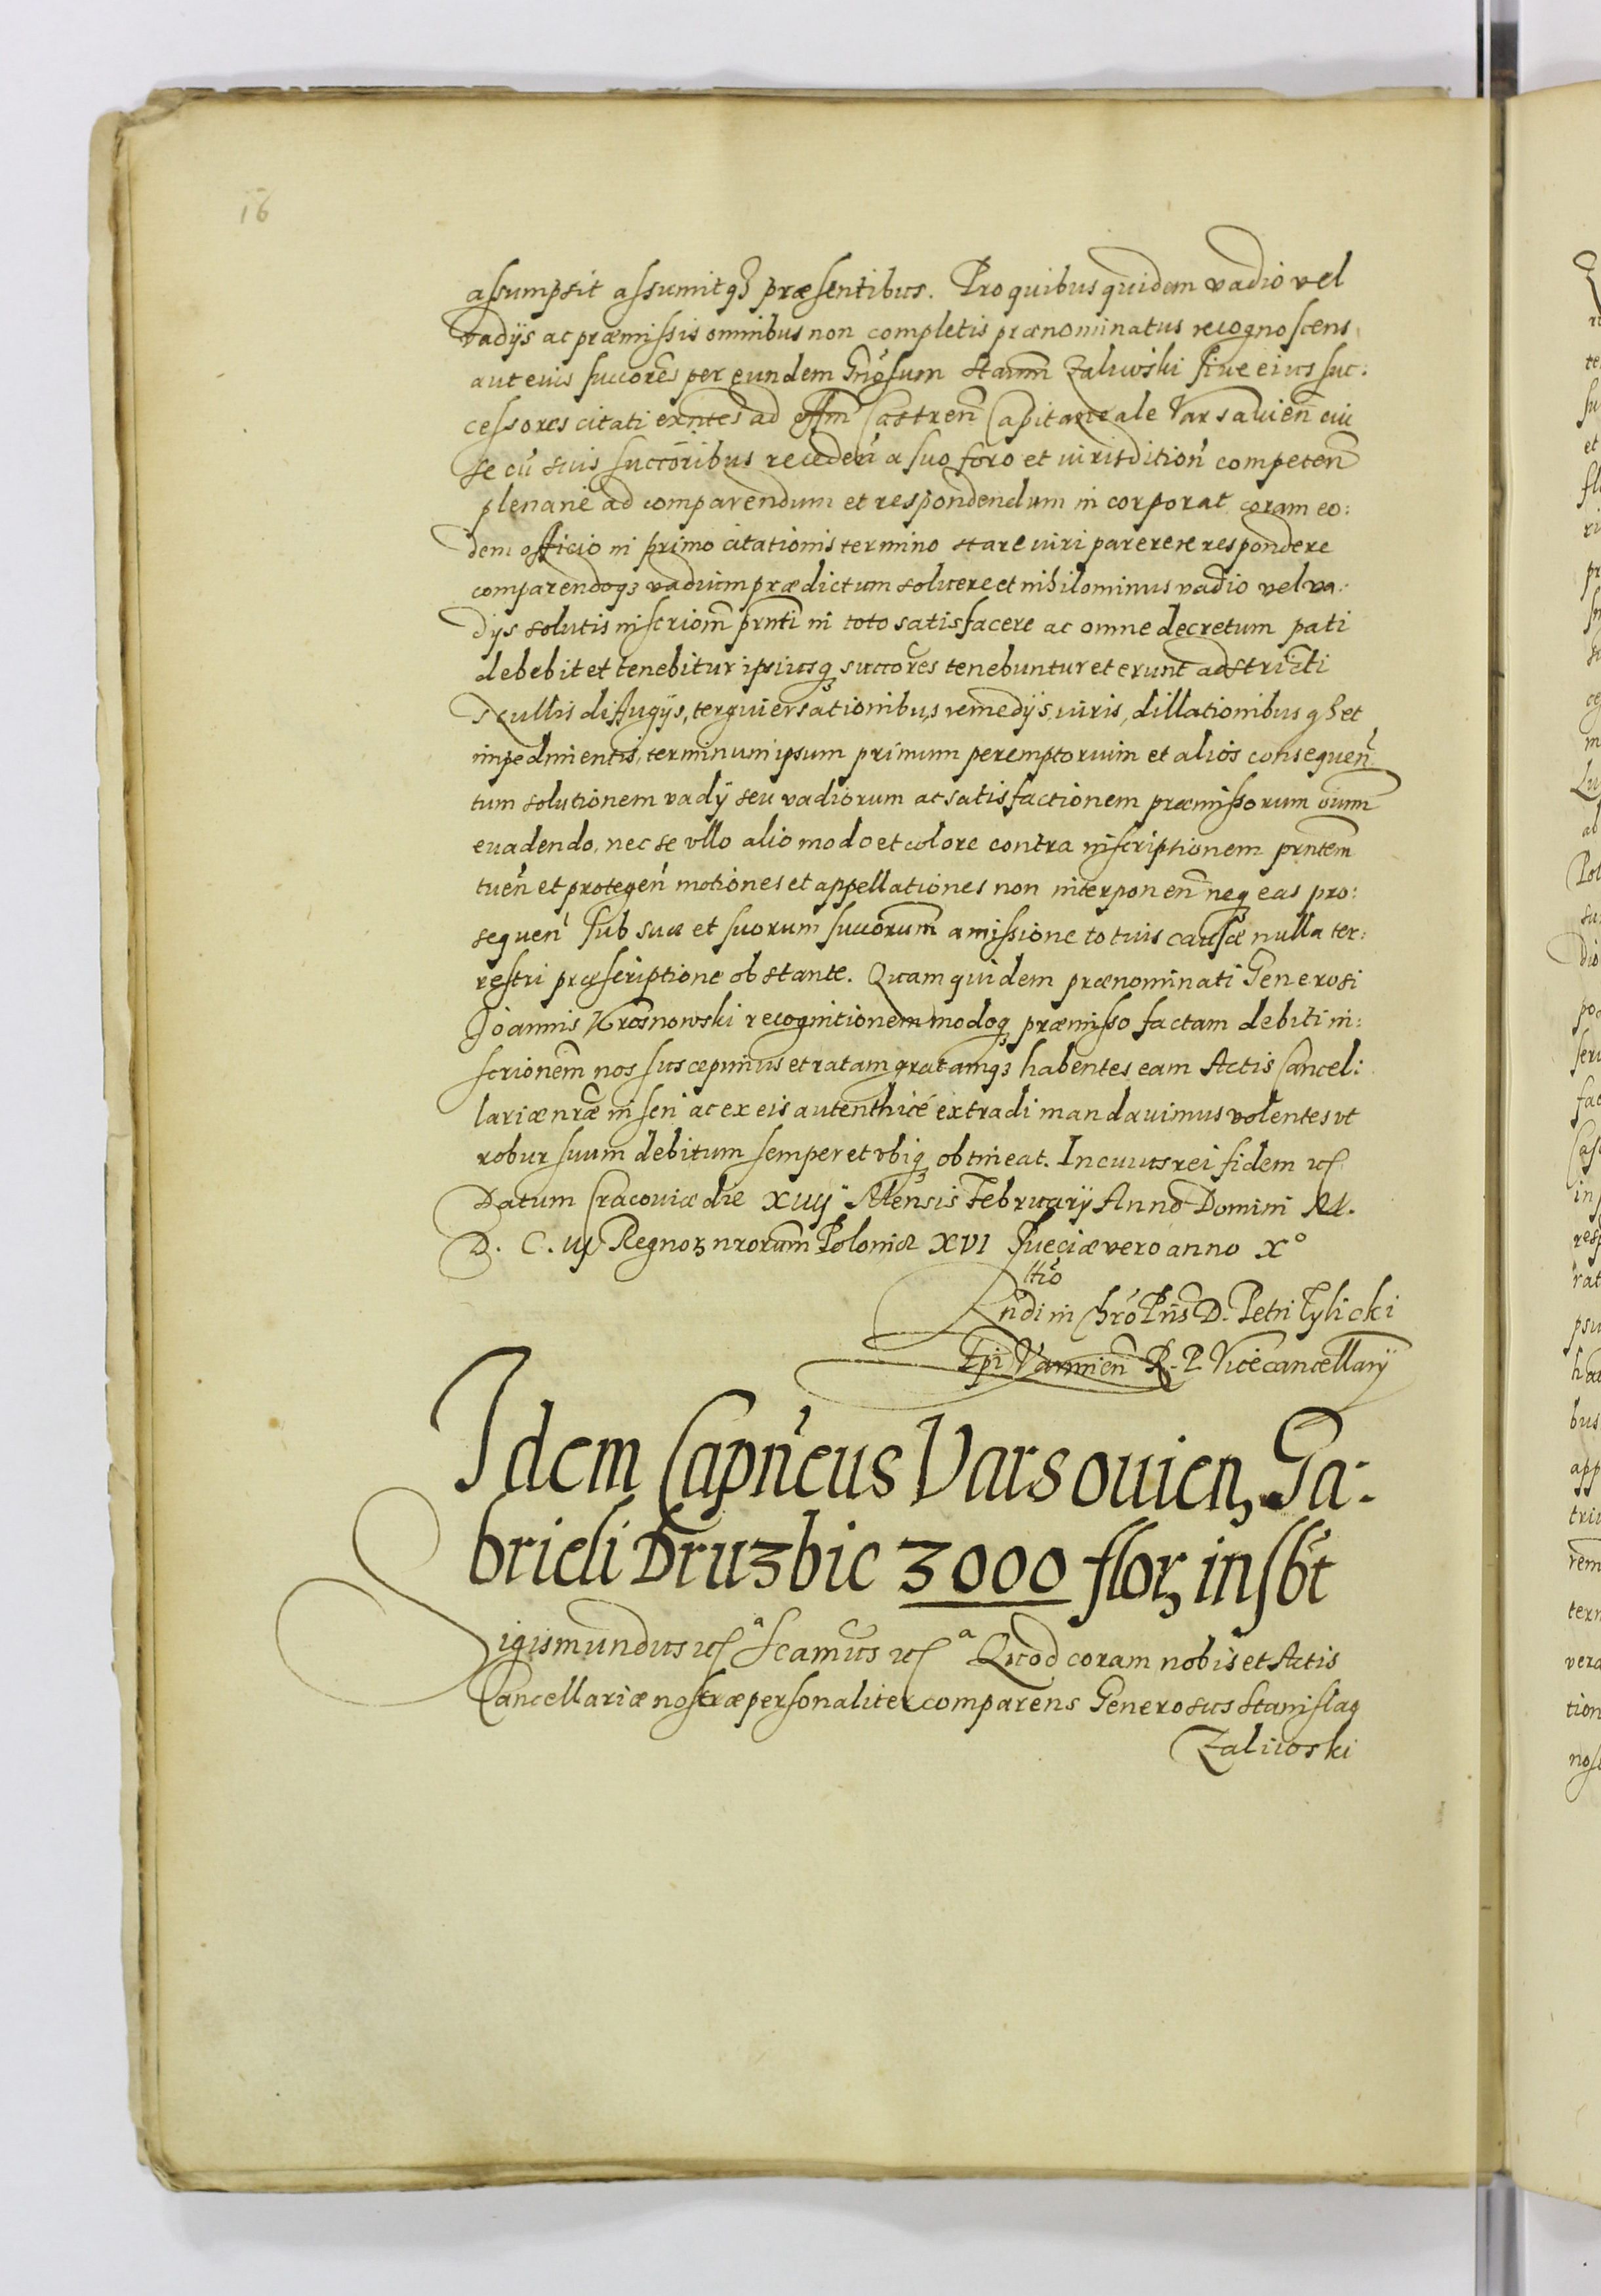 16
assumpsit assumitqȝ præsentibus. Pro quibus quidem vadio vel
vadijs ac præmissis omnibus non completis prænominatus recognoscens
aut eius succores per eundem Gnosum Stanm Zaliwski siue eius suc:
cessores citati exntes ad offm Castren Capitaneale Varsauien cui
se cū suis succoribus recedeń a suo foro et iurisdition competen
plenarie ad comparendum et respondendum incorporat coram eo:
dem officio in primo citationis termino stare iuri parere respondere
comparendoqȝ vadium prædictum soluere et nihilominus vadio vel va:
dijs solutis inscriom prnti in toto satisfacere ac omne decretum pati
debebit et tenebitur ipsiusq succores tenebuntur et erunt adstricti
Nullis diffugijs, terguiersationibus, remedijs iuris, dillationibusqȝ et
impedimentis, terminum ipsum primum peremptorium et alios consequen
tum solutionem vadij seu vadiorum ac satisfactionem præmissorum oium
euadendo, nec se vllo alio modo et colore contra inscriptionem prntem
tuen et protegen motiones et appellationes non interponen neq eas pro:
sequen sub sua et suorum succorum amissione totius causæ nulla ter:
restri præscriptione obstante. Quam quidem prænominati Generosi
Joannis Krosnowski recognitionem modoq præmisso factam debiti in:
scrionem nos suscepimus et ratam gratamqȝ habentes eam Actis Cancel:
lariæ nræ inseri ac ex eis autenthicé extradi mandauimus volentes vt
robur suum debitum semper et vbiq obtineat. In cuius rei fidem etc
Datum Cracouiæ die xviij Mensis Februarij Anno Domini M.
D. C. iij Regnoȝ nrorum Poloniæ XVI Sueciæ vero anno X°
Rltio
Rndi in Chro Pris D. Petri Tylicki
Epi Varmien R. P. Vicecancellarij
Idem Capneus Varsouien, Ga:
brieli Druzbic 3000 flor, insbt
Sigismundus etc a Scamus etc a Quod coram nobis et Actis
Cancellariæ nostræ personaliter comparens Generosus Stanislaq
Zaliwski